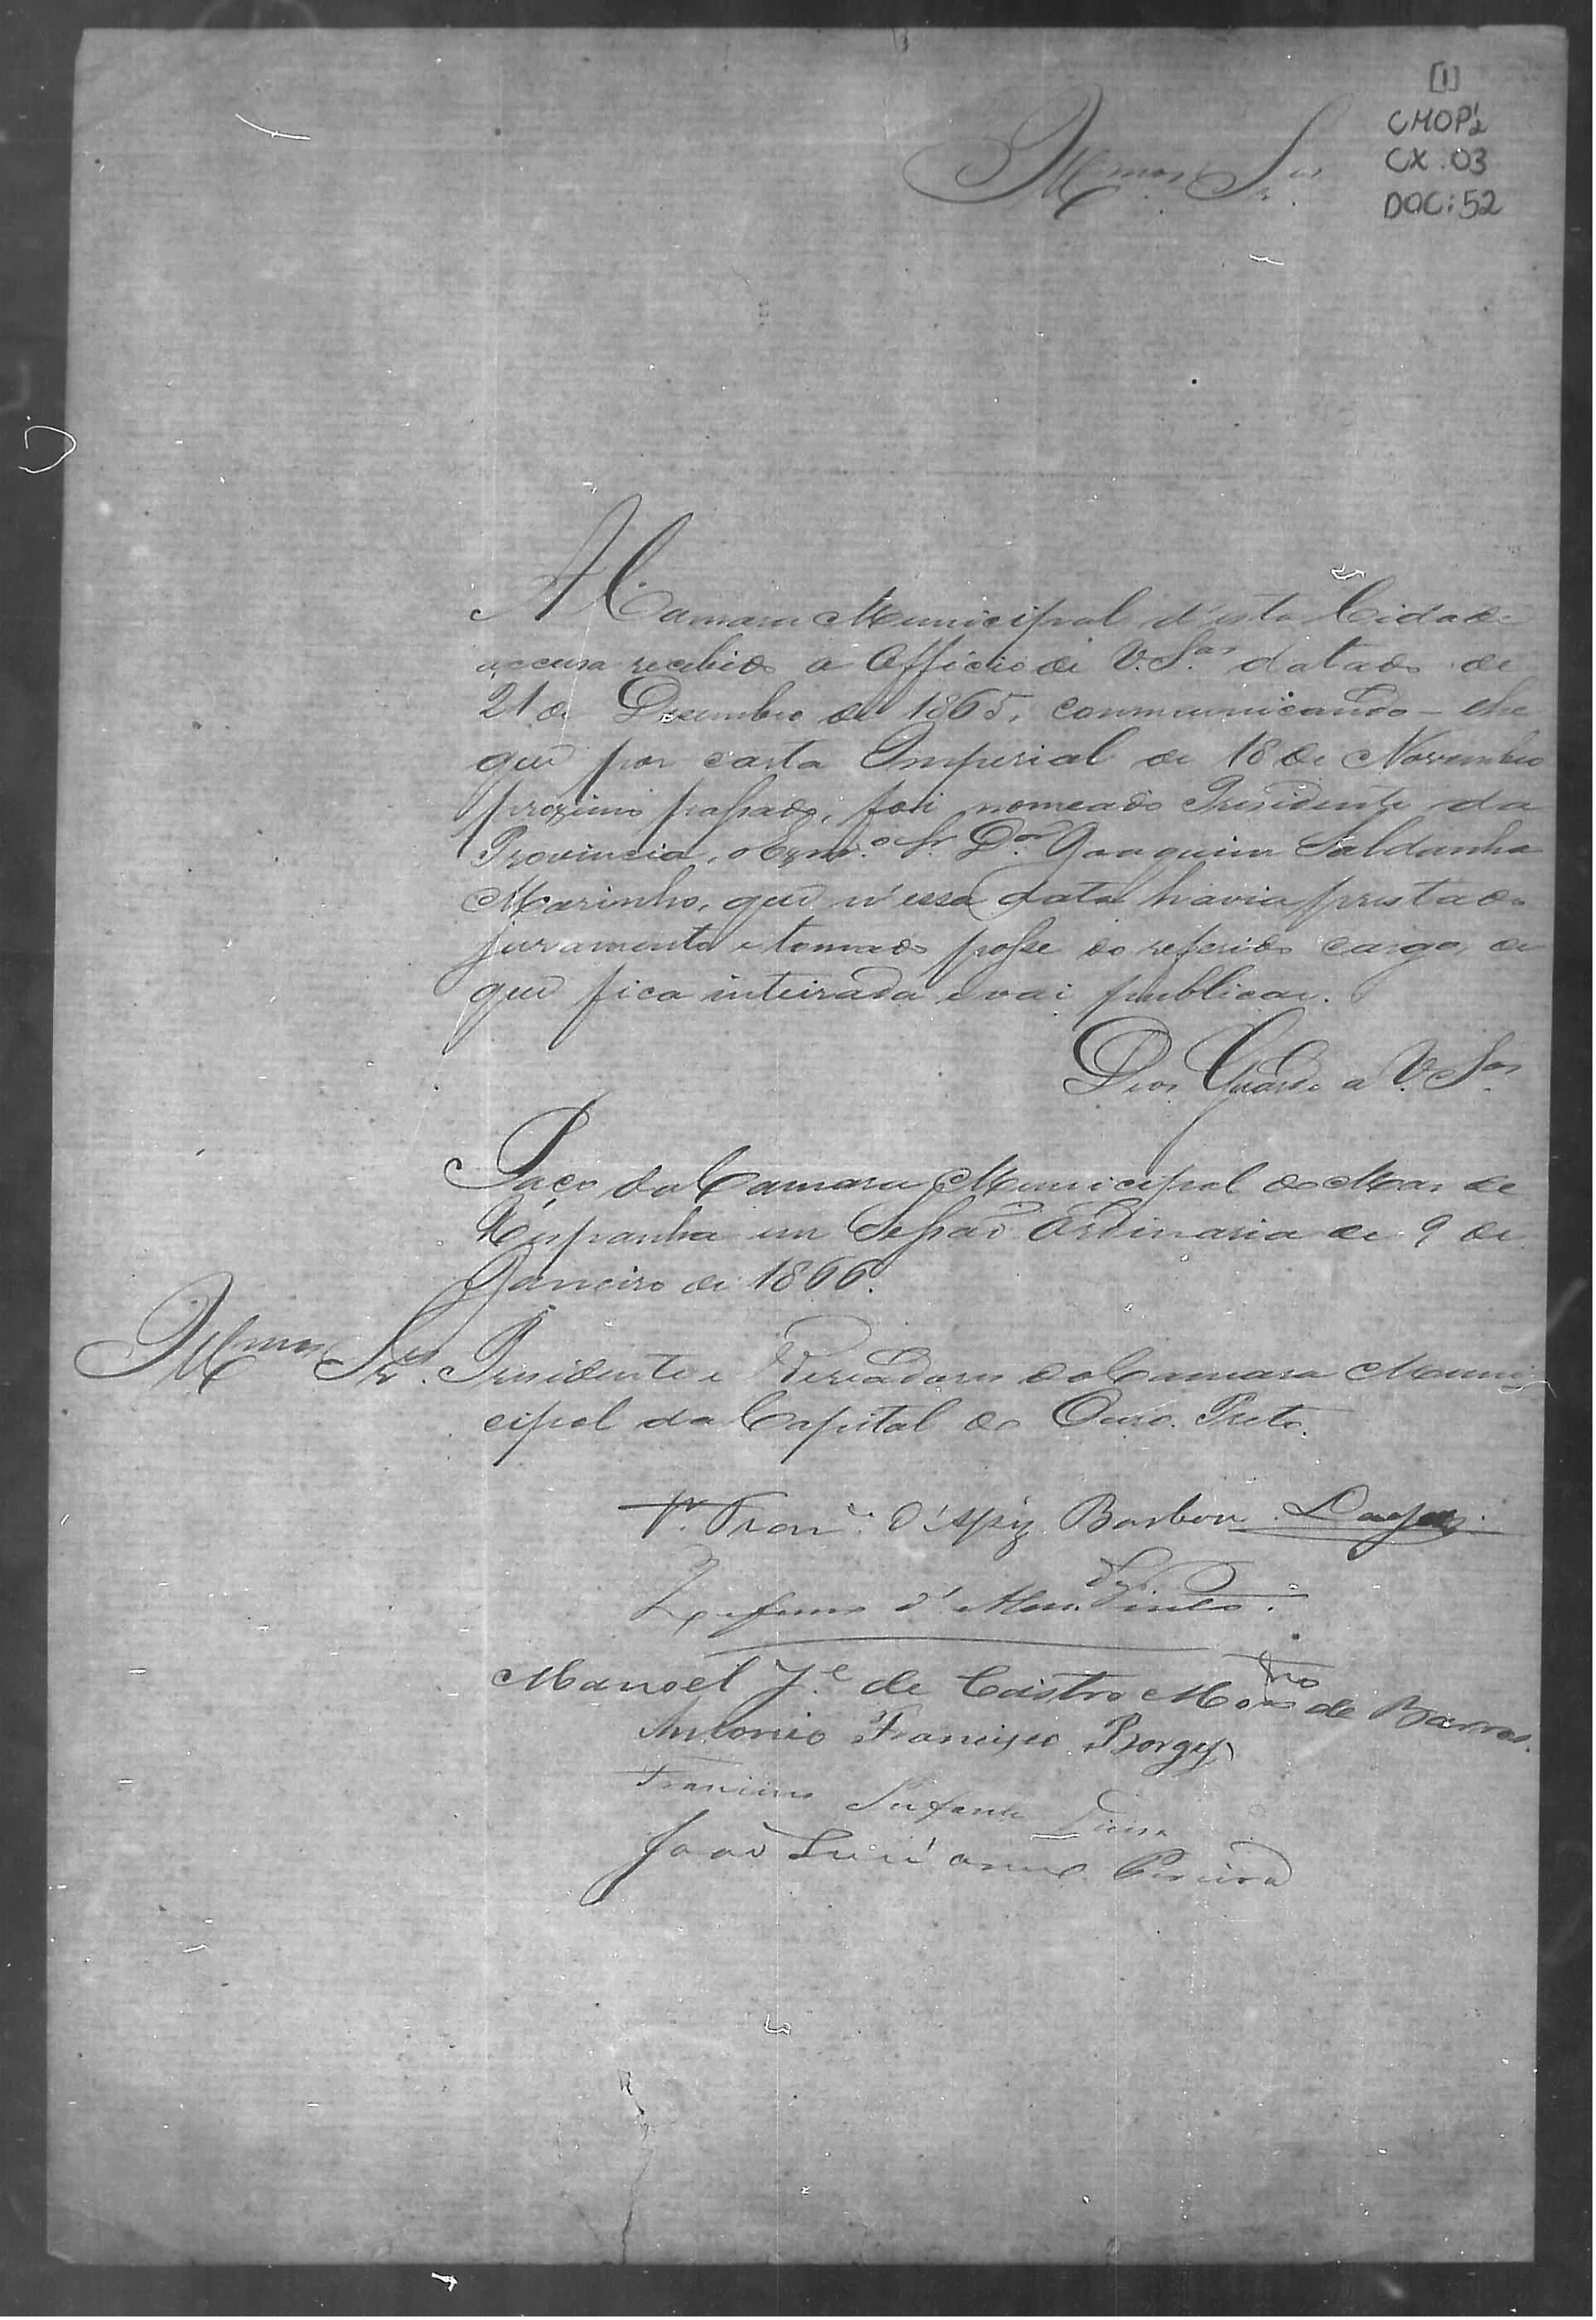 [1]
CMOP½
CX: 03
DOC: 52
Illmos Snrs
A Camara Municipal d'esta Cidade
accusa recebido o Officio de V. Sas datado de
21 de Dezembro de 1865, communicando-lhe
que por carta Imperial de 18 de Novembro
proximo passado, foi nomeado Presidente da
Provincia, o Exmo Sr Dor Joaquim Saldanha
Marinho, que n'essa data havia prestado
juramento e tomado posse do referido cargo, de
que fica inteirada e vai publicar.
Deos Guarde a V. Sas
Paço da Camara Municipal do Mar de
Hespanha em Sessão Ordinaria de 9 de
Janeiro de 1866.
Illmos Snrs Presidente e Vereadores da Camara Muni-
cipal da Capital do Ouro Preto.
Fran d'Assiz Barbosa
Manoel Je de Castro Montro de Barros
Antonio Francisco Borges
Francisco
João Pereira